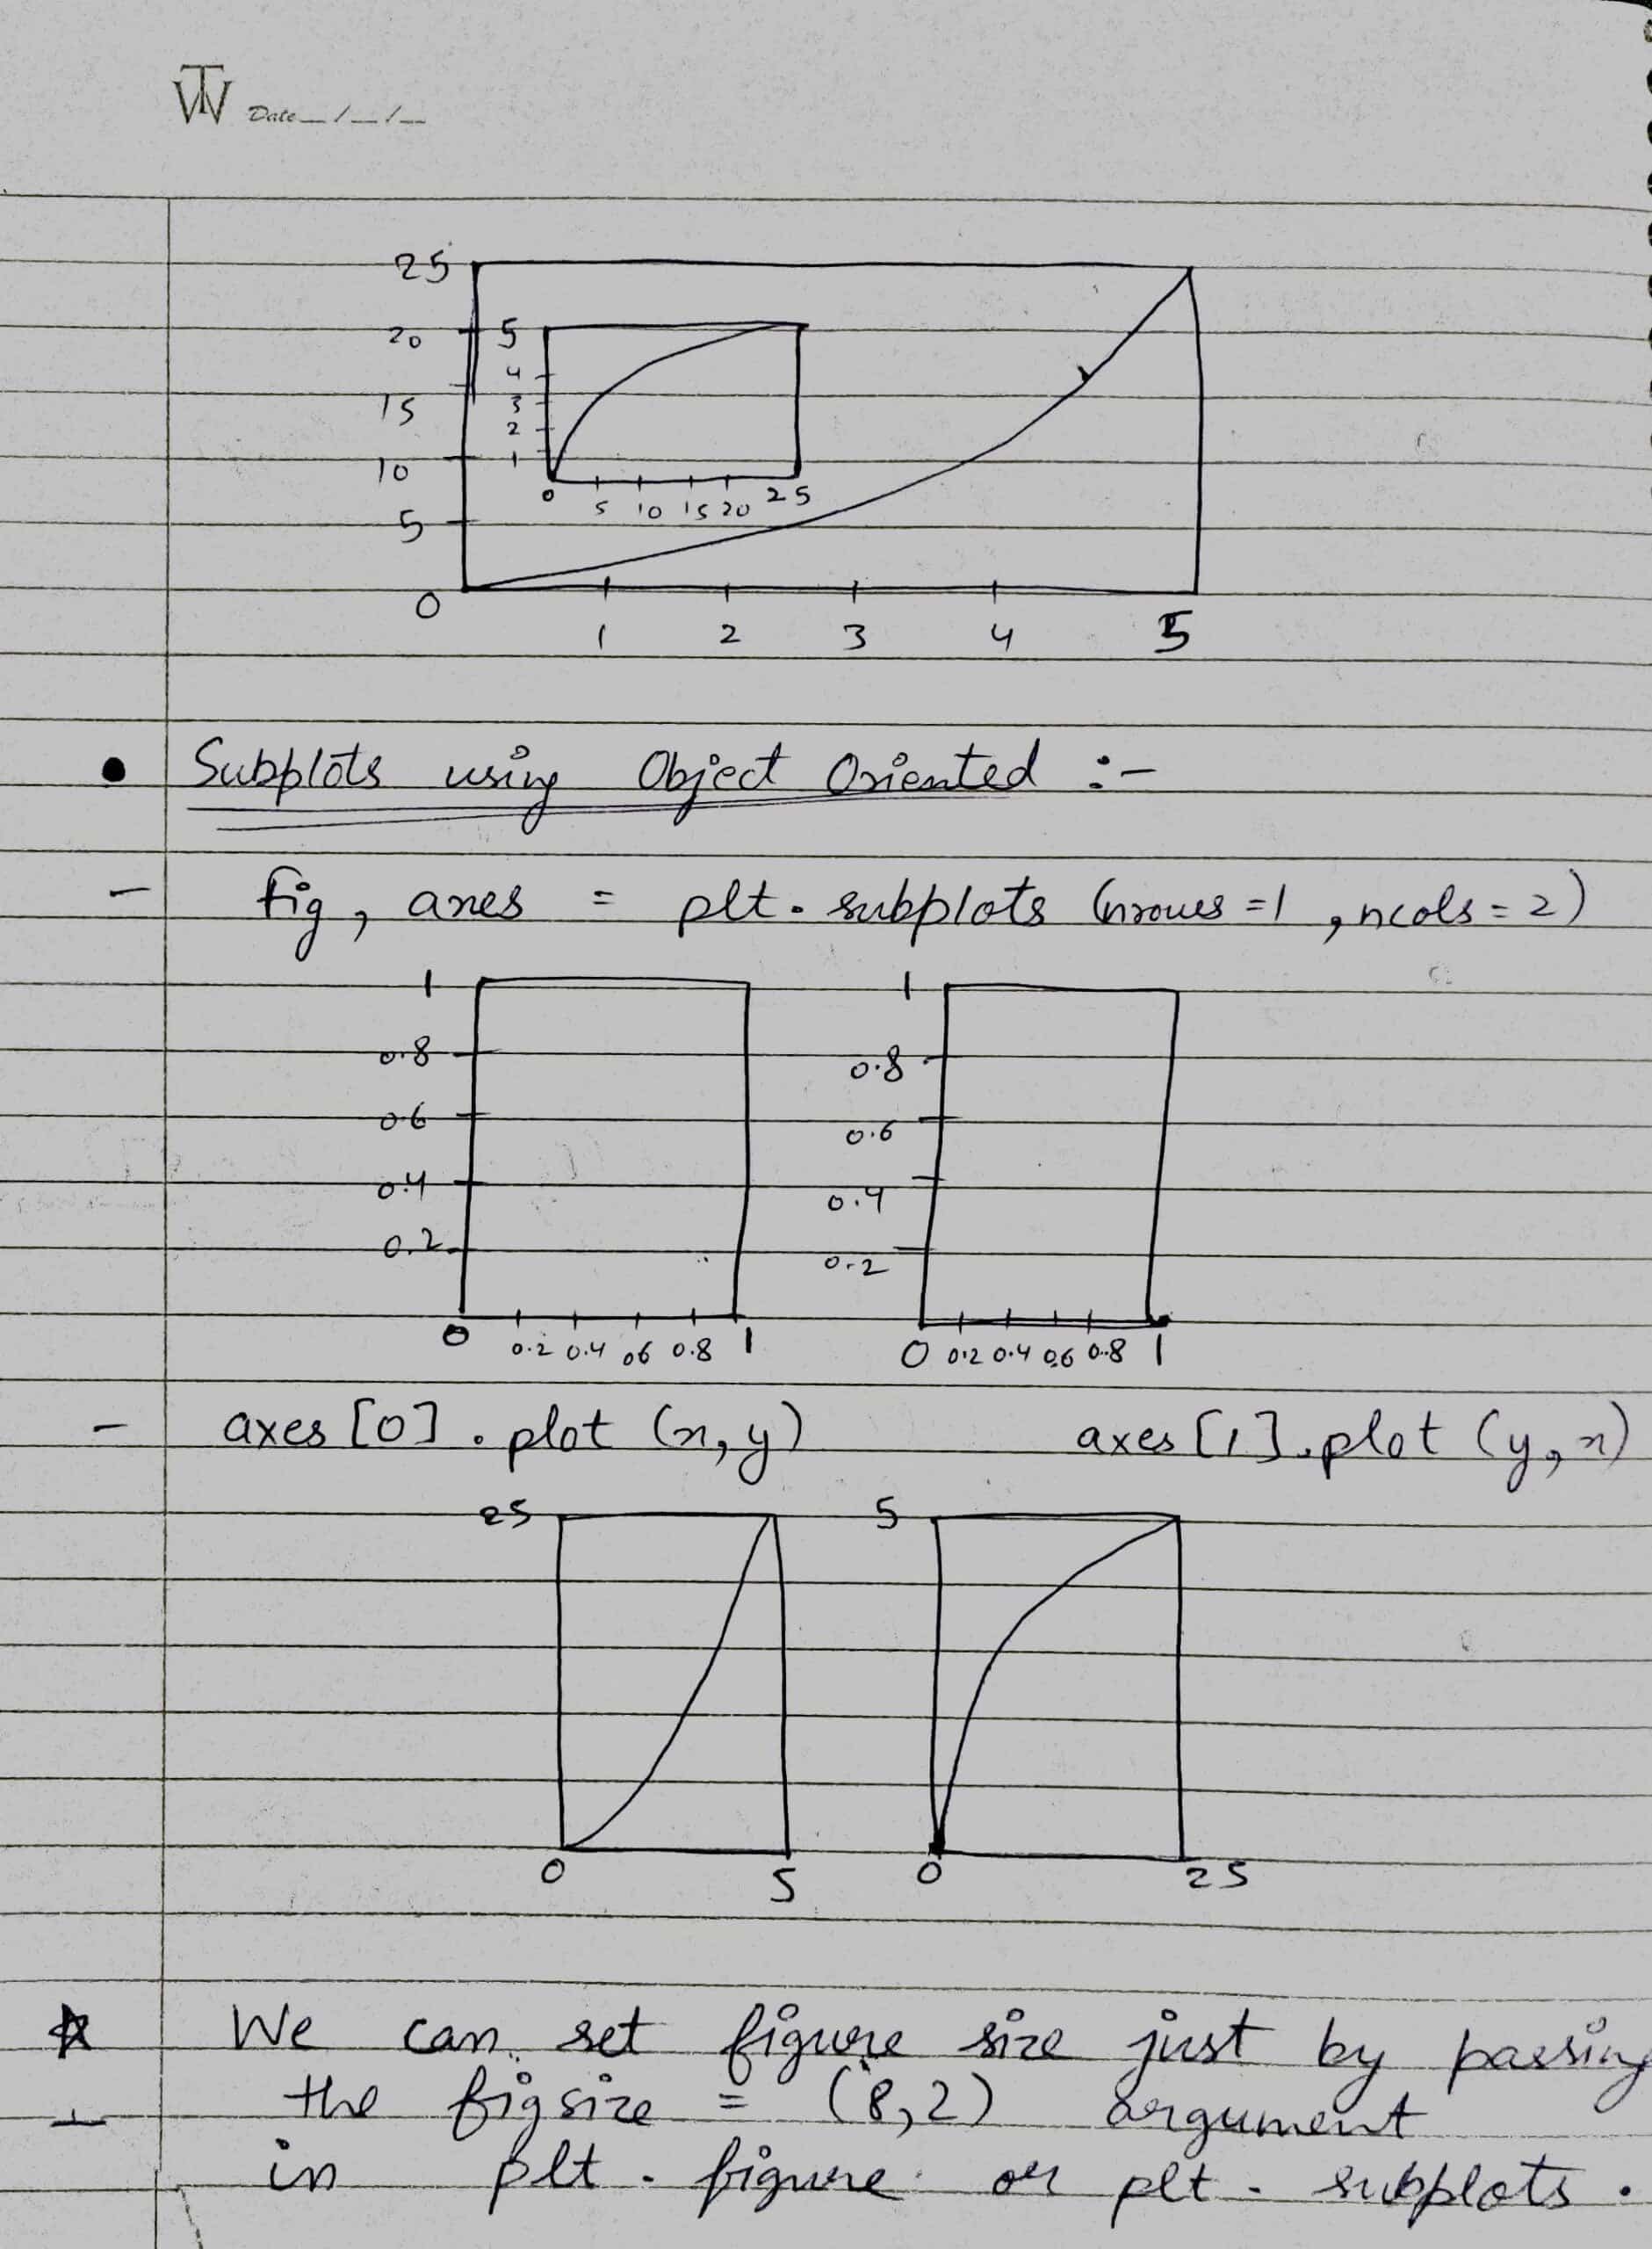 TWN Date__/__/__
25
20 5
4
15 3
2
10 1
0 5 10 15 20 25
5
0
1 2 3 4 5
• Subplots using Object Oriented :-
- fig, axes = plt.subplots (nrows=1, ncols=2)
1 1
0.8 0.8
0.6 0.6
0.4 0.4
0.2 0.2
0 0.2 0.4 06 0.8 1 0 0.2 0.4 0.6 0.8 1
- axes [0].plot (x,y) axes [1].plot (y,x)
25 5
0 5 0 25
☆ We can set figure size just by passing
the figsize = (8,2) argument
in plt.figure or plt.subplots.